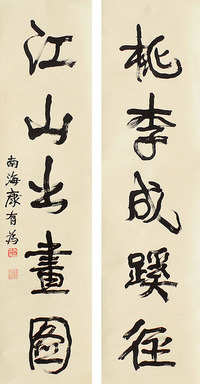 桃李成蹊径
江山出畫圖
南海康有為